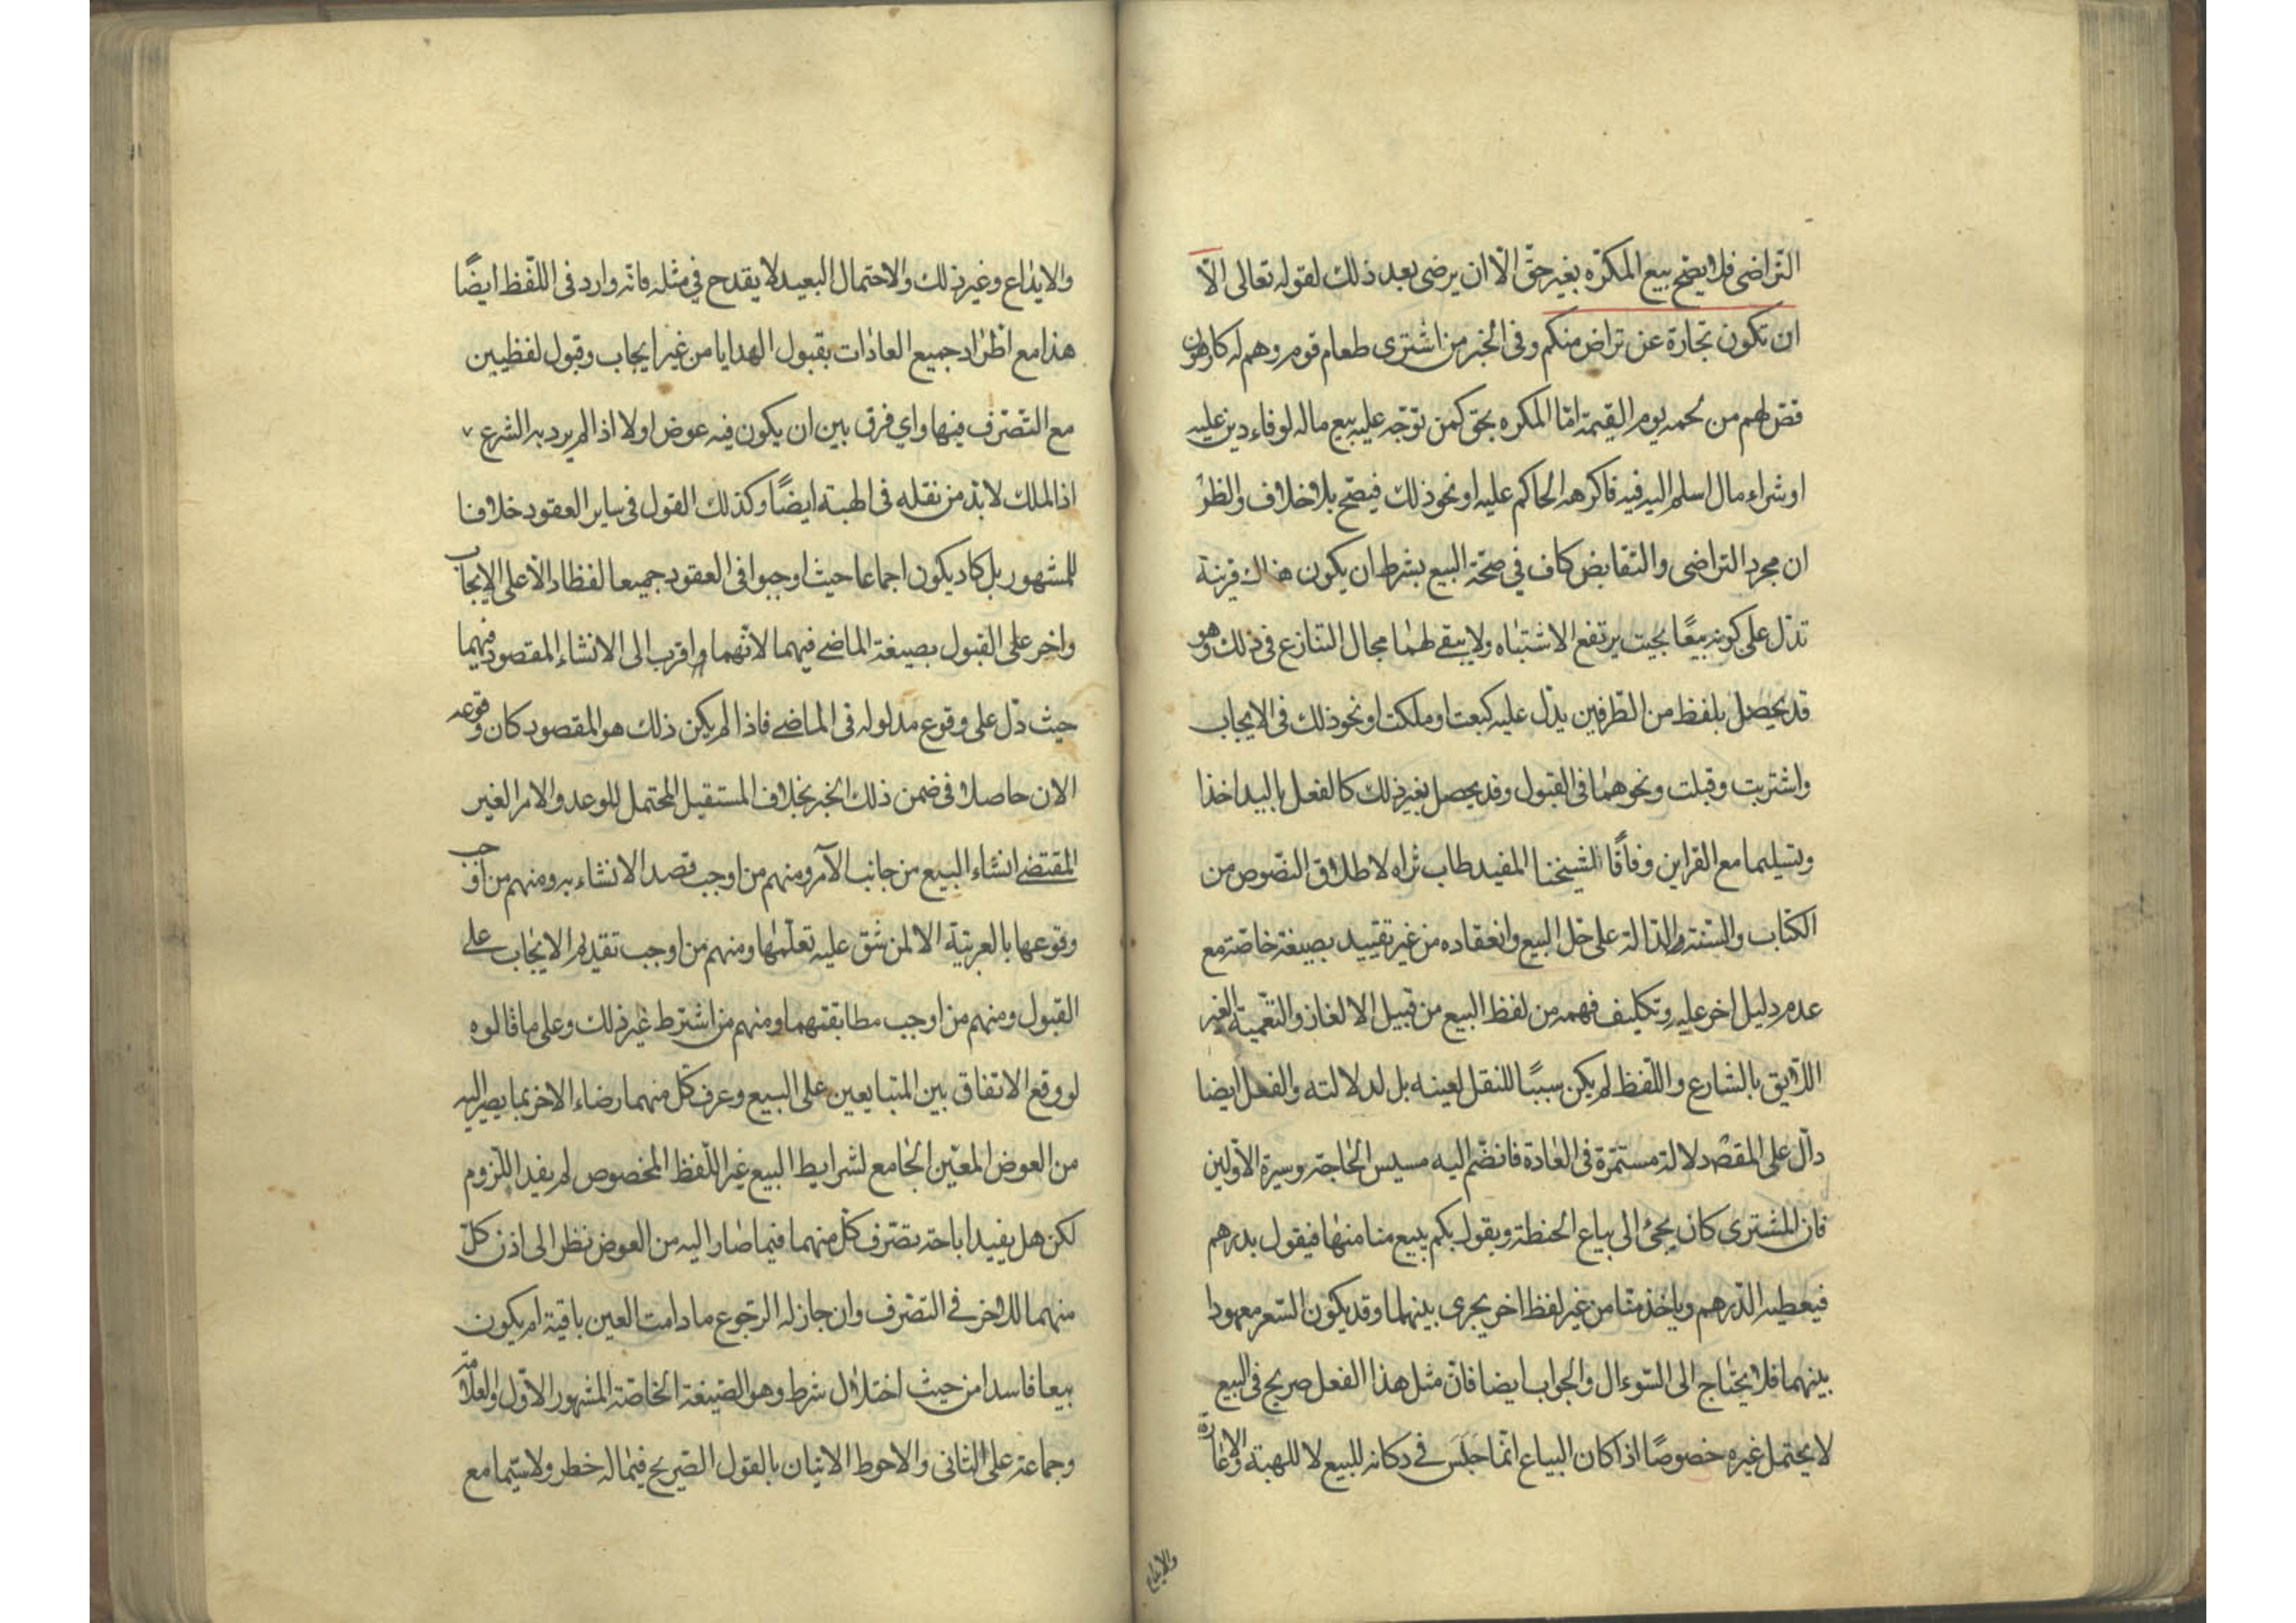 التراضى فلا يصح بيع المكره بغير حق الا ان يرضى بعد ذلك لقوله تعالى الا
ان تكون تجارة عن تراض منكم وفى الخبر من اشترى طعام قوم وهم له كارهون
قص لهم من لحمه يوم القيمة امّا المكره بحق كمن توجّه عليه بيع ماله لوفاء دين عليه
او شراء مال اسلم اليه فيه فاكرهه الحاكم عليه او نحو ذلك فيصح بلا خلاف والظ
ان مجرد التراضى والتقابض كاف في صحّة البيع بشرط ان يكون هناك قرينة
تدّل على كونه بيعًا بحيث يرتفع الاشتباه ولا يبقى لهما مجال التنازع فى ذلك وهو
قد يحصل بلفظ من الطّرفين يدّل عليه كبعت او ملكت او نحو ذلك فى الايجاب
واشتريت وقبلت ونحوهما فى القبول وقد يحصل بغير ذلك كالفعل باليد اخذا
وتسليما مع القراين وفاقًا لشيخنا المفيد طاب ثراه لاطلاق النّصوص من
الكتاب والسّنة الدّالة على حلّ البيع وانعقاده من غير تقييد بصيغة خاصّة مع
عدم دليل اخر عليه وتكليف فهمه من لفظ البيع من قبيل الالغاز والتّعمية الغير
اللّايق بالشارع واللّفظ لم يكن سببًا للنقل لعينه بل لدلالته والفعل ايضا
دالّ على المقصد دلالة مستمّرة فى العادة فانضّم اليه مسيس الحاجة وسيرة الاوّلين
فان المشترى كان يجئ الى بياع الحنطة ويقول بكم تبيع منا منها فيقول بدرهم
فيعطيه الدّرهم وياخذ منّا من غير لفظ اخر يجرى بينهما وقد يكون السّعر معهودا
بينهما فلا يحتاج الى السّوءال والجواب ايضا فانّ مثل هذا الفعل صريح فى البيع
لا يحتمل غيره خصوصًا اذا كان البياع انّما جلس في دكانه للبيع لا للهبة والاعارة
والايداع
والايداع وغير ذلك والاحتمال البعيد لا يقدح في مثله فانّه وارد فى اللّفظ ايضًا
هذا مع اطّراد جميع العادات بقبول الهدايا من غير ايجاب وقبول لفظيين
مع التّصّرف فيها واي فرق بين ان يكون فيه عوض اولا اذ لم يرد به الشرع
اذ الملك لا بدّ من نقله فى الهبة ايضًا وكذلك القول فى ساير العقود خلافا
للمشهور بل كاد يكون اجماعا حيث اوجبوا فى العقود جميعا لفظا دالّا على الايجاب
واخر على القبول بصيغة الماضى فيهما لانّهما اقرب الى الانشاء المقصود فيهما
حيث دّل على وقوع مدلوله فى الماضى فاذا لم يكن ذلك هو المقصود كان وقوعه
الان حاصلا فى ضمن ذلك الخبر بخلاف المستقبل المحتمل للوعد والامر الغير
المقتضى انشاء البيع من جانب الآمر ومنهم من اوجب قصد الانشاء به ومنهم من اوجب
وقوعها بالعربيّة الا لمن شق عليه تعلّمها ومنهم من اوجب تقديم الايجاب على
القبول ومنهم من اوجب مطابقتهما ومنهم من اشترط غير ذلك وعلى ما قالوه
لو وقع الاتفاق بين المتبايعين على البيع وعرف كلّ منهما رضاء الاخر بما يصير اليه
من العوض المعيّن الجامع لشرايط البيع غير اللّفظ المخصوص لم يفد اللّزوم
لكن هل يفيد اباحة تصّرف كلّ منهما فيما صار اليه من العوض نظر الى اذن كلّ
منهما للاخر في التصّرف وان جاز له الرّجوع ما دامت العين باقية ام يكون
بيعا فاسدا من حيث اختلال شرط وهو الصّيغة الخاصّة المشهور الاوّل والعلامة
وجماعة على الثانى والاحوط الاتيان بالقول الصّريح فيما له خطر ولا سيّما مع